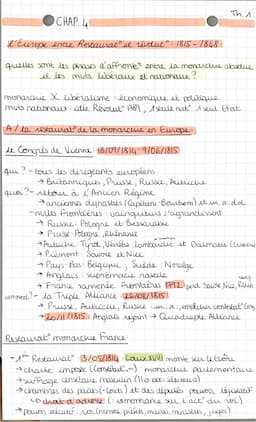 Th. 1
CHAP. 4
l'Europe entre Restaurat° et révolut° : 1815 - 1848
quelles sont les phases d'affronte^t entre la monarchie absolue
et les mvts libéraux et nationaux ?
monarchie X libéralisme : économique et politique
mvts nationaux : idée Révolut° 1789, 1 seule nat°, 1 seul Etat
A / la restaurat° de la monarchie en Europe
le Congrès de Vienne 18/09/1814 - 9/06/1815
qui ? - tous les dirigeants européens
→ Britanniques, Prusse, Russie, Autriche
quoi ? - retour à l'Ancien Régime
→ anciennes dynasties (Capétiens - Bourbons) et m. a. d
- nvlles frontières : vainqueurs s'agrandissent
→ Russie : Pologne et Bessarabie
→ Prusse : Pologne, Rhénanie
→ Autriche : Tyrol, Vénétie, Lombardie et Dalmatie
→ Piémont : Savoie et Nice
→ Pays-Bas : Belgique, Suède : Norvège
→ Anglais : suprématie navale
→ France ramenée frontières 1792, perd Savoie, Nice,
comment ? - la Triple Alliance 26/09/1815
→ Prusse, Autriche, Russie
→ 20/11/1815 Anglais rejoint → Quadruple Alliance
Restaurat° monarchie France
- 1ère Restaurat° 3/05/1814 Louis XVIII monte sur le trône
→ charte imposée (Constitut°) monarchie parlementaire
→ suffrage censitaire masculin (110 000 électeurs)
→ chambres des paires (Lords) et des députés pouvoir législatif
↳ droit d'adresse (remontrance sur l'act° du roi)
→ pouvoir exécutif : roi (nomme paires, maires, ministres, juges)